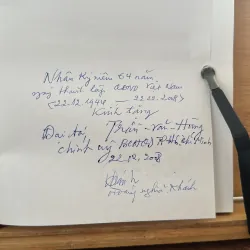 Nhân kỷ niệm 64 năm
ngày thành lập QĐND Việt Nam
(22.12.1944 – 22.12.2008)
Kính tặng
Đại tá Trần Văn Hùng
chính uỷ
22.12.2008
Hoàng Nghĩa Khánh